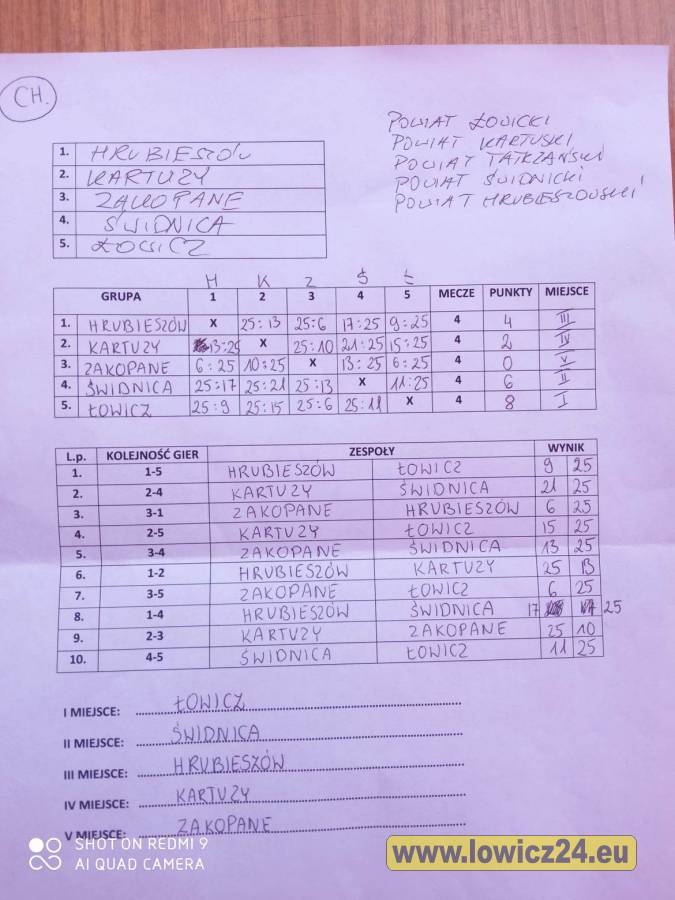 CH.
POWIAT ŁOWICKI
POWIAT KARTUSKI
POWIAT TATRZAŃSKI
POWIAT ŚWIDNICKI
POWIAT HRUBIESZOWSKI
1. HRUBIESZÓW
2. KARTUZY
3. ZAKOPANE
4. ŚWIDNICA
5. ŁOWICZ
H K Z Ś Ł
GRUPA 1 2 3 4 5 MECZE PUNKTY MIEJSCE
1. HRUBIESZÓW X 25:13 25:6 17:25 9:25 4 4 III
2. KARTUZY 13:25 X 25:10 21:25 15:25 4 2 IV
3. ZAKOPANE 6:25 10:25 X 13:25 6:25 4 0 V
4. ŚWIDNICA 25:17 25:21 25:13 X 11:25 4 6 II
5. ŁOWICZ 25:9 25:15 25:6 25:11 X 4 8 I
L.p. KOLEJNOŚĆ GIER ZESPOŁY WYNIK
1. 1-5 HRUBIESZÓW ŁOWICZ 9 25
2. 2-4 KARTUZY ŚWIDNICA 21 25
3. 3-1 ZAKOPANE HRUBIESZÓW 6 25
4. 2-5 KARTUZY ŁOWICZ 15 25
5. 3-4 ZAKOPANE ŚWIDNICA 13 25
6. 1-2 HRUBIESZÓW KARTUZY 25 13
7. 3-5 ZAKOPANE ŁOWICZ 6 25
8. 1-4 HRUBIESZÓW ŚWIDNICA 17 25
9. 2-3 KARTUZY ZAKOPANE 25 10
10. 4-5 ŚWIDNICA ŁOWICZ 11 25
I MIEJSCE: ŁOWICZ
II MIEJSCE: ŚWIDNICA
III MIEJSCE: HRUBIESZÓW
IV MIEJSCE: KARTUZY
V MIEJSCE: ZAKOPANE
SHOT ON REDMI 9
AI QUAD CAMERA
www.lowicz24.eu